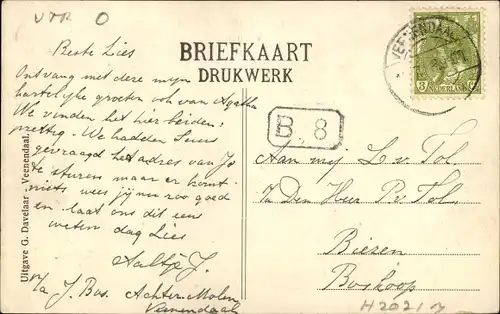 VTR O
VEENENDAAL
3
NEDERLAND
BRIEFKAART
DRUKWERK
B 8
Beste Lies
Ontvang met deze mijn
hartelijke groeten ook van Agatha
We vinden het hier beiden
prettig. We hadden
gevraagd het adres van Jo
te sturen maar er komt
niets wees jij nu zoo goed
en laat ons dit eens
weten dag Lies
Aaltje J.
p/a J. Bos. Achter Molen
Veenendaal
Aan mej L v. Tol.
p/a Den Heer P v Tol
Biezen
Boskoop
Uitgave G. Davelaar, Veenendaal.
H2021